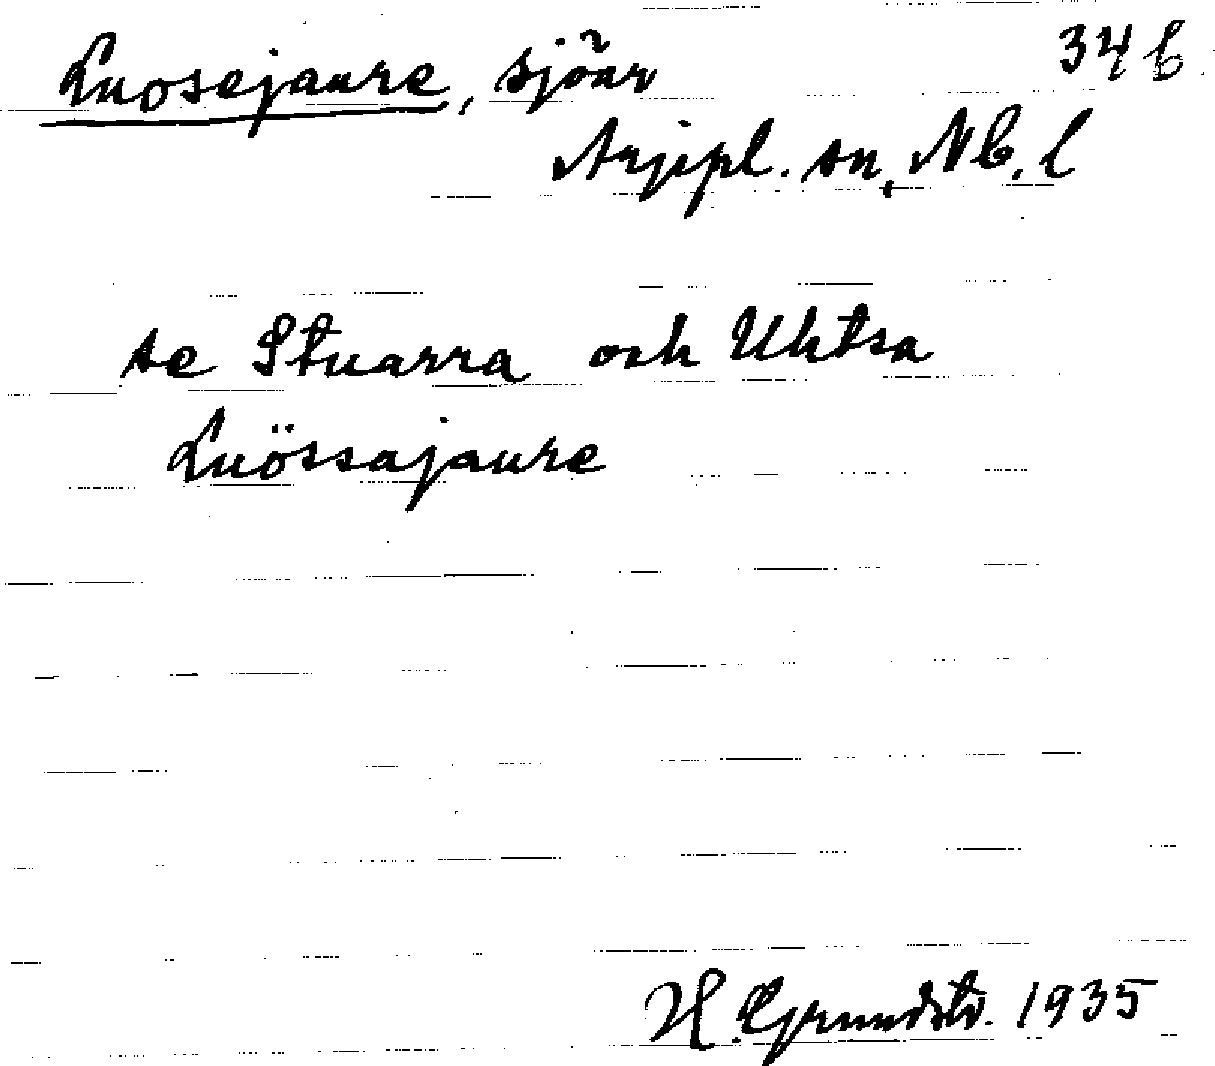 Luosejaure, sjöar 34 b
Arjepl. sn, Nb. l
se Stuarra och Uhtsa
Luössajaure
H. Grundstr. 1935